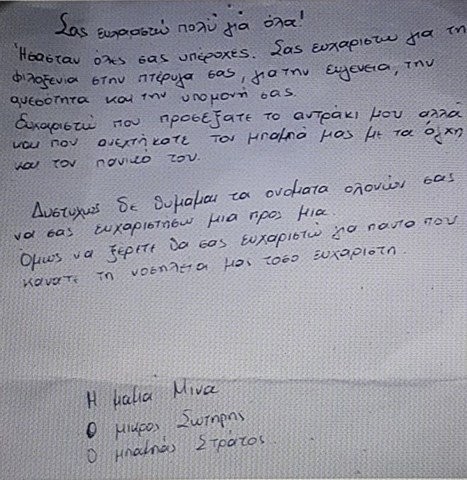 Σας ευχαριστώ πολύ για όλα!
Ήσασταν όλες σας υπέροχες. Σας ευχαριστώ για τη
φιλοξενια στην πτέρυγα σας, για την ευγενεια, την
αμεσότητα και την υπομονή σας.
Ευχαριστώ που προσέξατε το αντράκι μου αλλά
και που ανεχτήκατε τον μπαμπά μας με τα άγχη
και τον πανικό του.
Δυστυχώς δε θυμαμαι τα ονοματα ολονών σας
να σας ευχαριστησω μια προς μία.
Όμως να ξέρετε θα σας ευχαριστώ για παντα που
κανατε τη νοσηλεια μας τοσο ευχαριστη.
Η μαμα Μινα
Ο μικρος Σωτηρης
Ο μπαμπάς Στράτος.